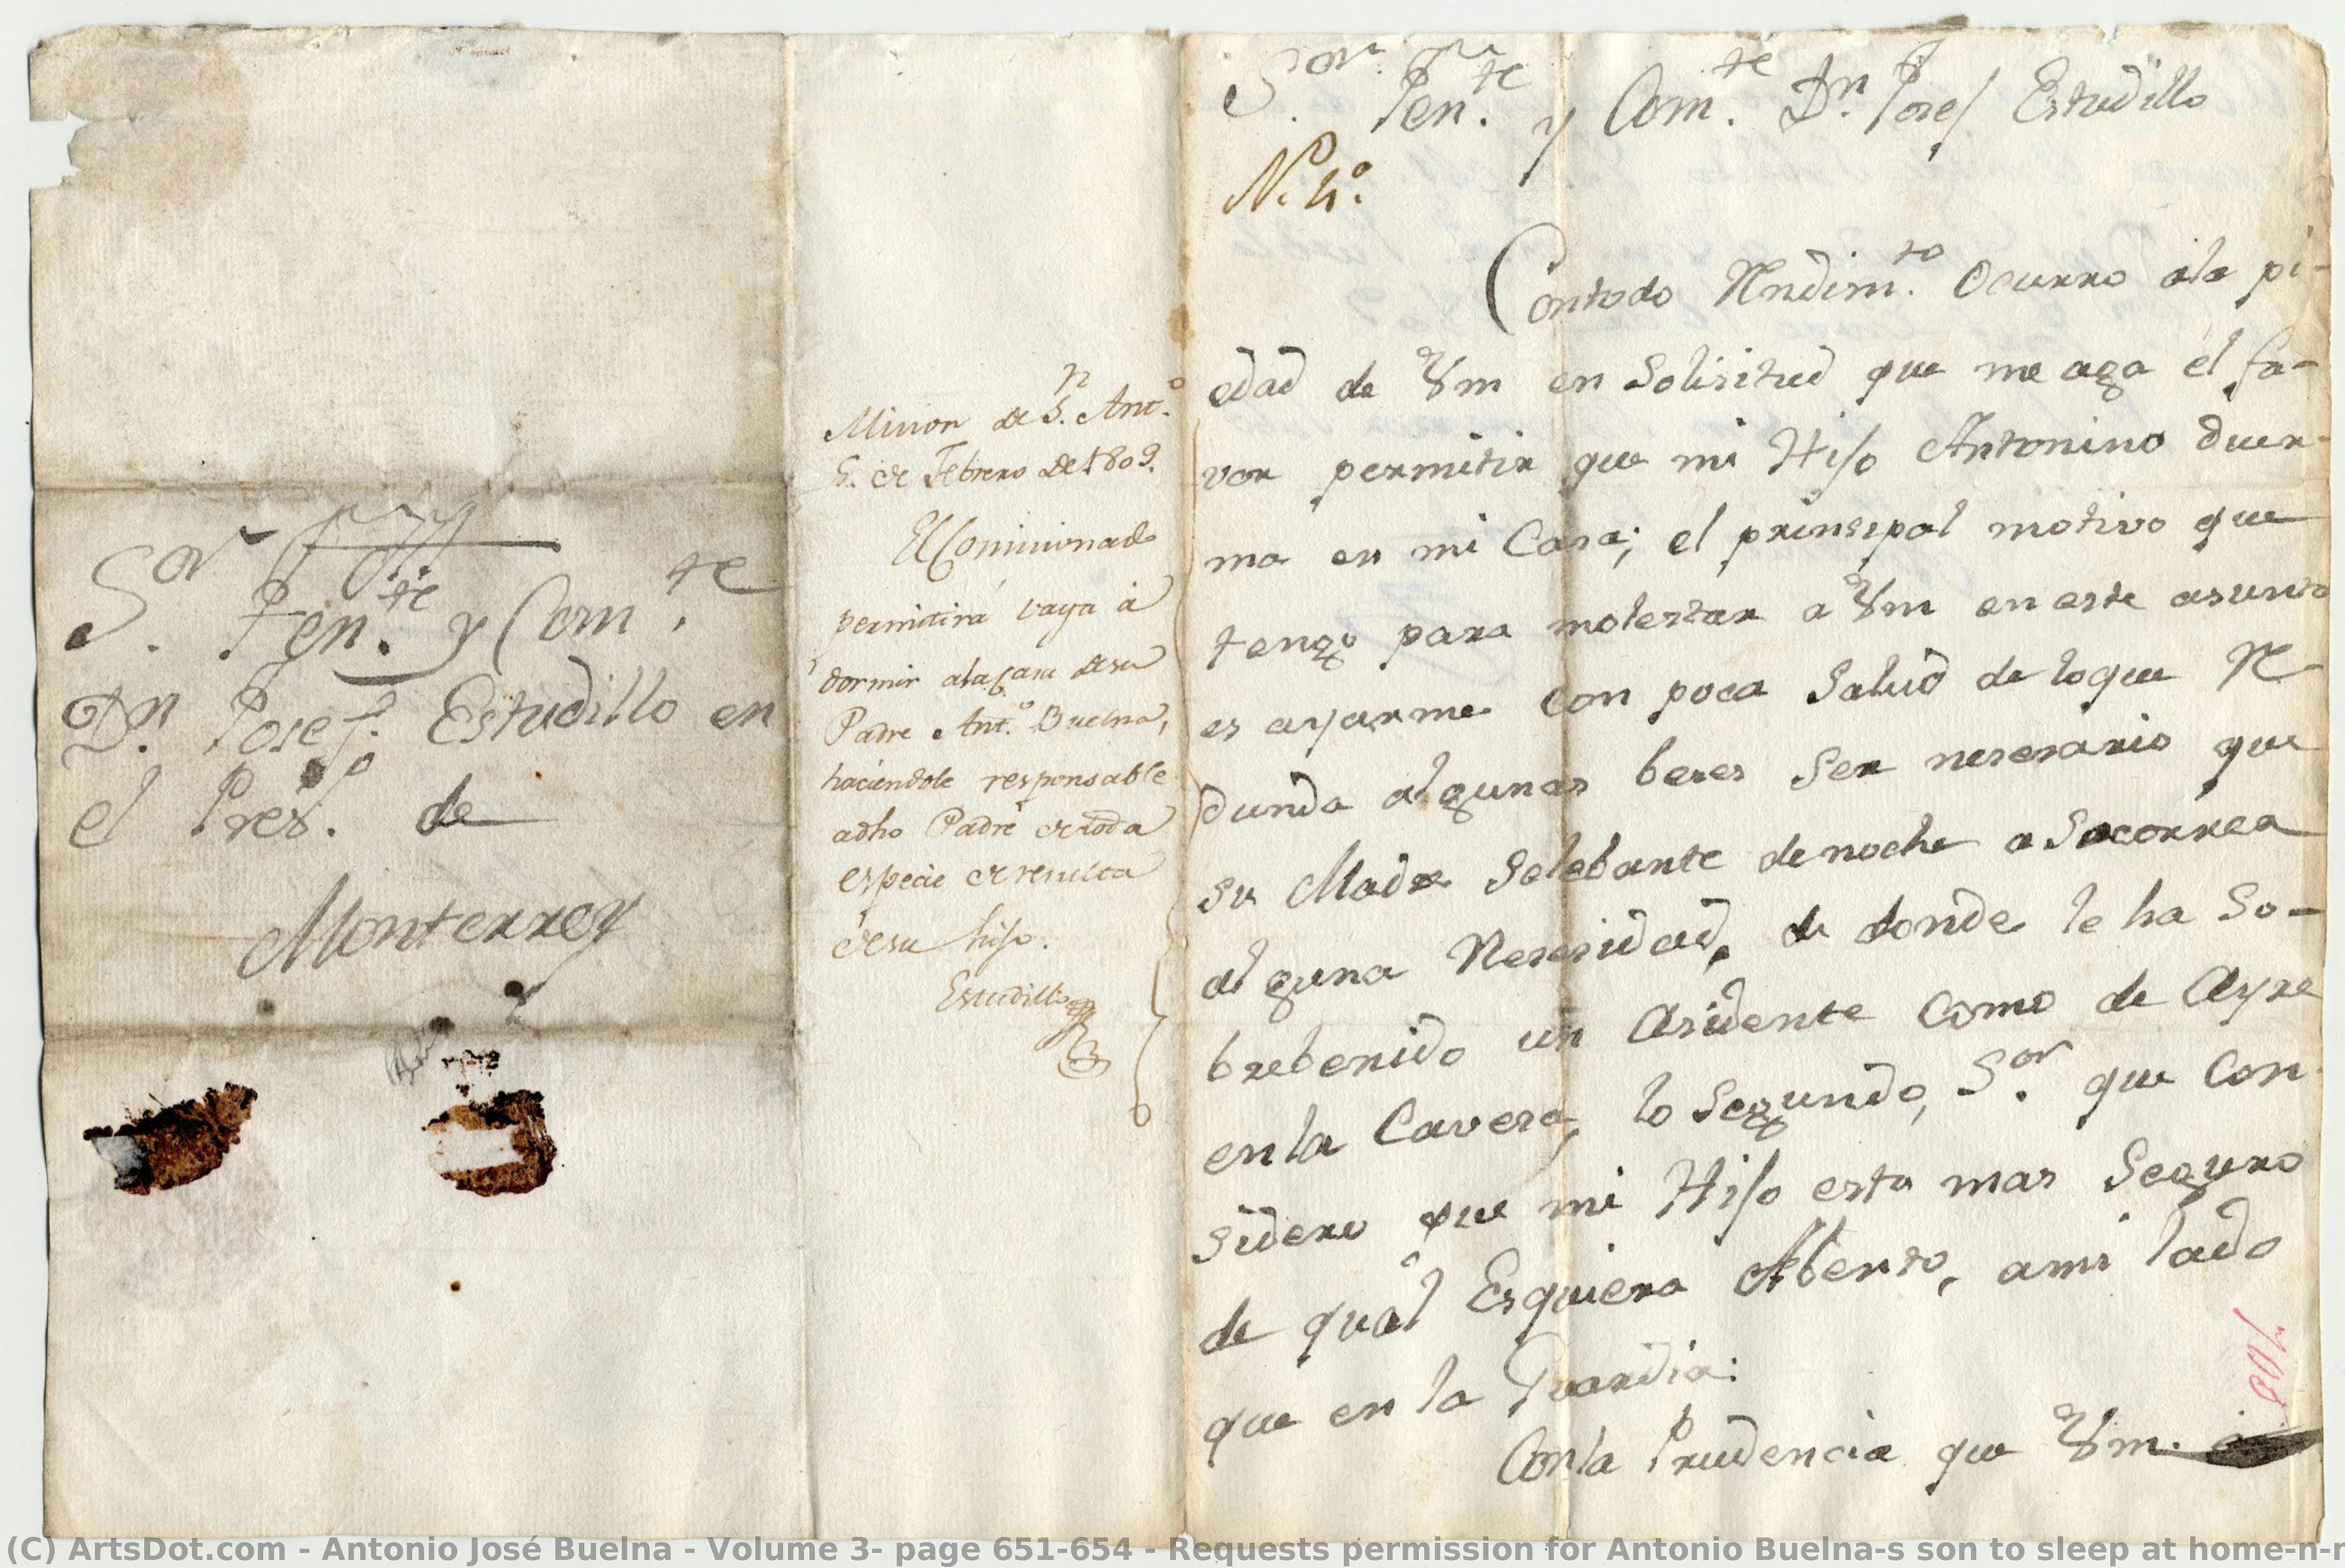 Sor. Tente.
y Comte. Dn. Josef Estudillo
en
el Preso. de
Monterrey
Mision de Sn. Anto.
5. de Febrero de 1809.
El Comisionado
permitirá vaya á
dormir ala Casa desu
Padre Anto. Buelna,
haciendole responsable
adho Padre de toda
especie de resulta
de su hijo.
Estudillo
Sor. Tente. y Comte. Dn. Josef Estudillo
N. 4°.
Contodo Rndimto. Ocurro ala pi-
edad de Vm en Solisitud que me aga el fa-
vor permitir que mi Hijo Antonino duer-
ma en mi Casa; el prinsipal motivo que
tengo para molestar a Vm en este asunto
es ayarme con poca Salud de loque R-
dunda algunas beses Ser nesesario que
su MadreSelebante denoche a Socorrer
alguna Nesesidad, de donde le ha So-
brebenido un Asidente como de Ayre
en la Cavesa, lo Segundo, Sor. que Con-
sidero que mi Hijo esta mas Seguro
de qual Esquiera Aberso, ami lado
que en la Guardia:
Conla Prudencia que Vm.
(C) ArtsDot.com - Antonio José Buelna - Volume 3- page 651-654 - Requests permission for Antonio Buelna-s son to sleep at home-n-r